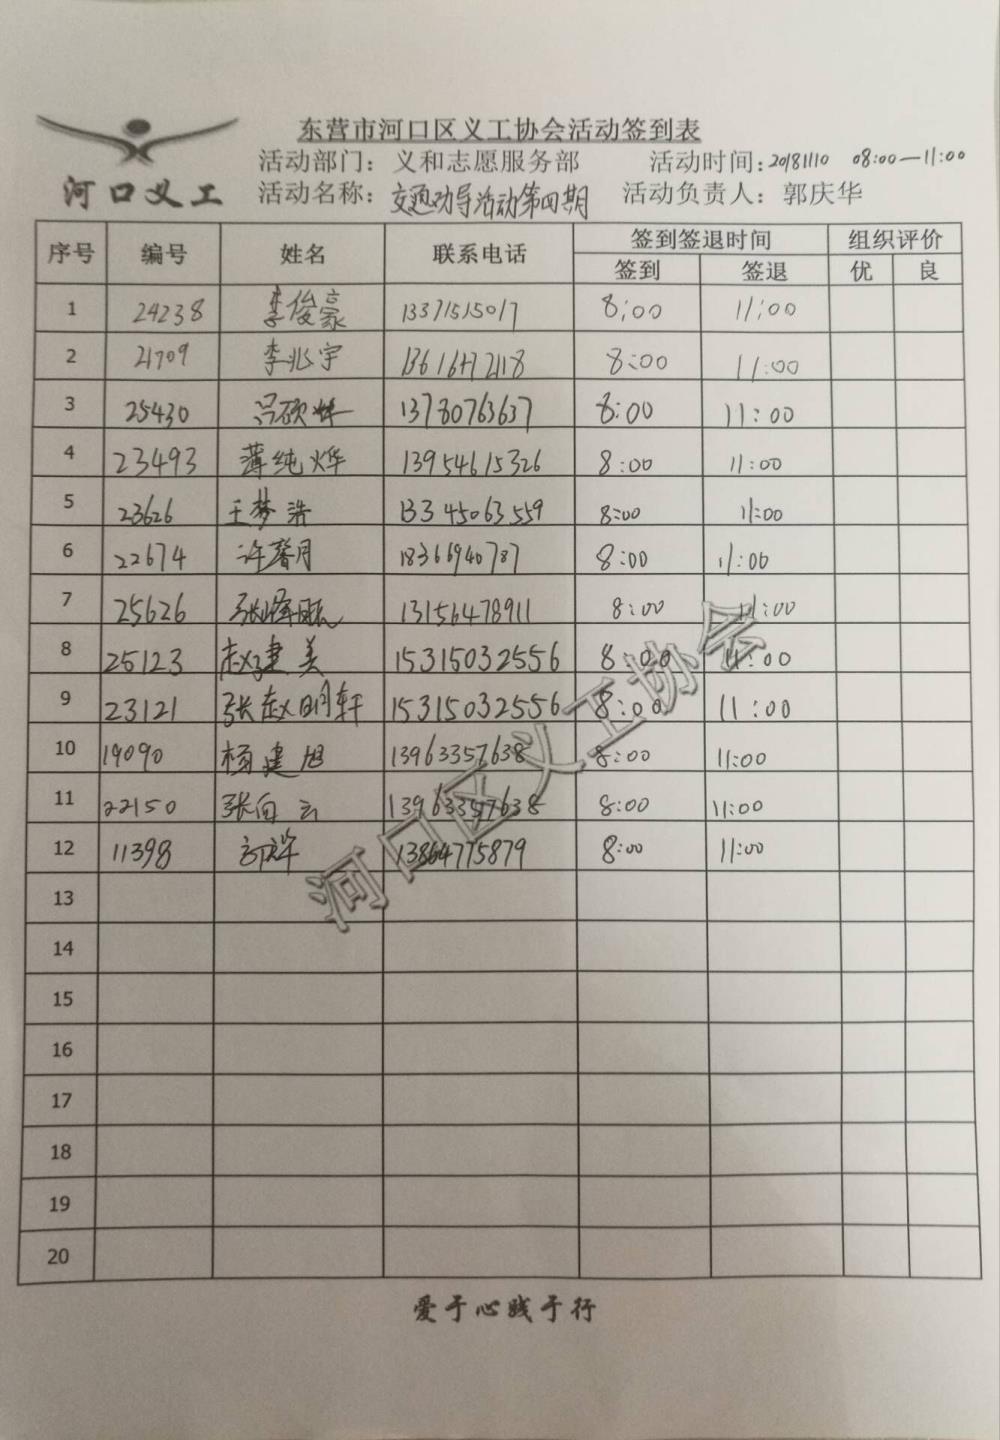 东营市河口区义工协会活动签到表
活动部门：义和志愿服务部 活动时间：20181110 08:00—11:00
河口义工
活动名称：交通劝导活动第四期 活动负责人：郭庆华
序号 编号 姓名 联系电话 签到签退时间 组织评价
签到 签退 优 良
1 24238 李俊豪 13371515017 8:00 11:00
2 21709 李兆宇 8:00 11:00
3 25430 13780763637 8:00 11:00
4 23493 薄纯烨 13954615326 8:00 11:00
5 23626 王梦浩 13345063559 8:00 11:00
6 22674 许馨月 18366940787 8:00 11:00
7 25626 13156478911 8:00 11:00
8 25123 赵建美 15315032556 8:00 11:00
9 23121 张赵明轩 15315032556 8:00 11:00
10 19090 杨建旭 13963357638 8:00 11:00
11 22150 张向云 13963357638 8:00 11:00
12 11398 13864775879 8:00 11:00
13
14
15
16
17
18
19
20
河口区义工协会
爱于心践于行